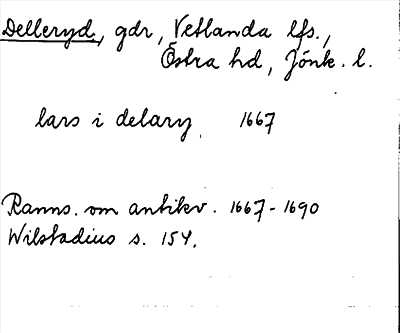 Delleryd, gdr, Vetlanda lfs.,
Östra hd, Jönk. l.
lars i delary 1667
Ranns. om antikv. 1667-1690
Wilstadius s. 154.